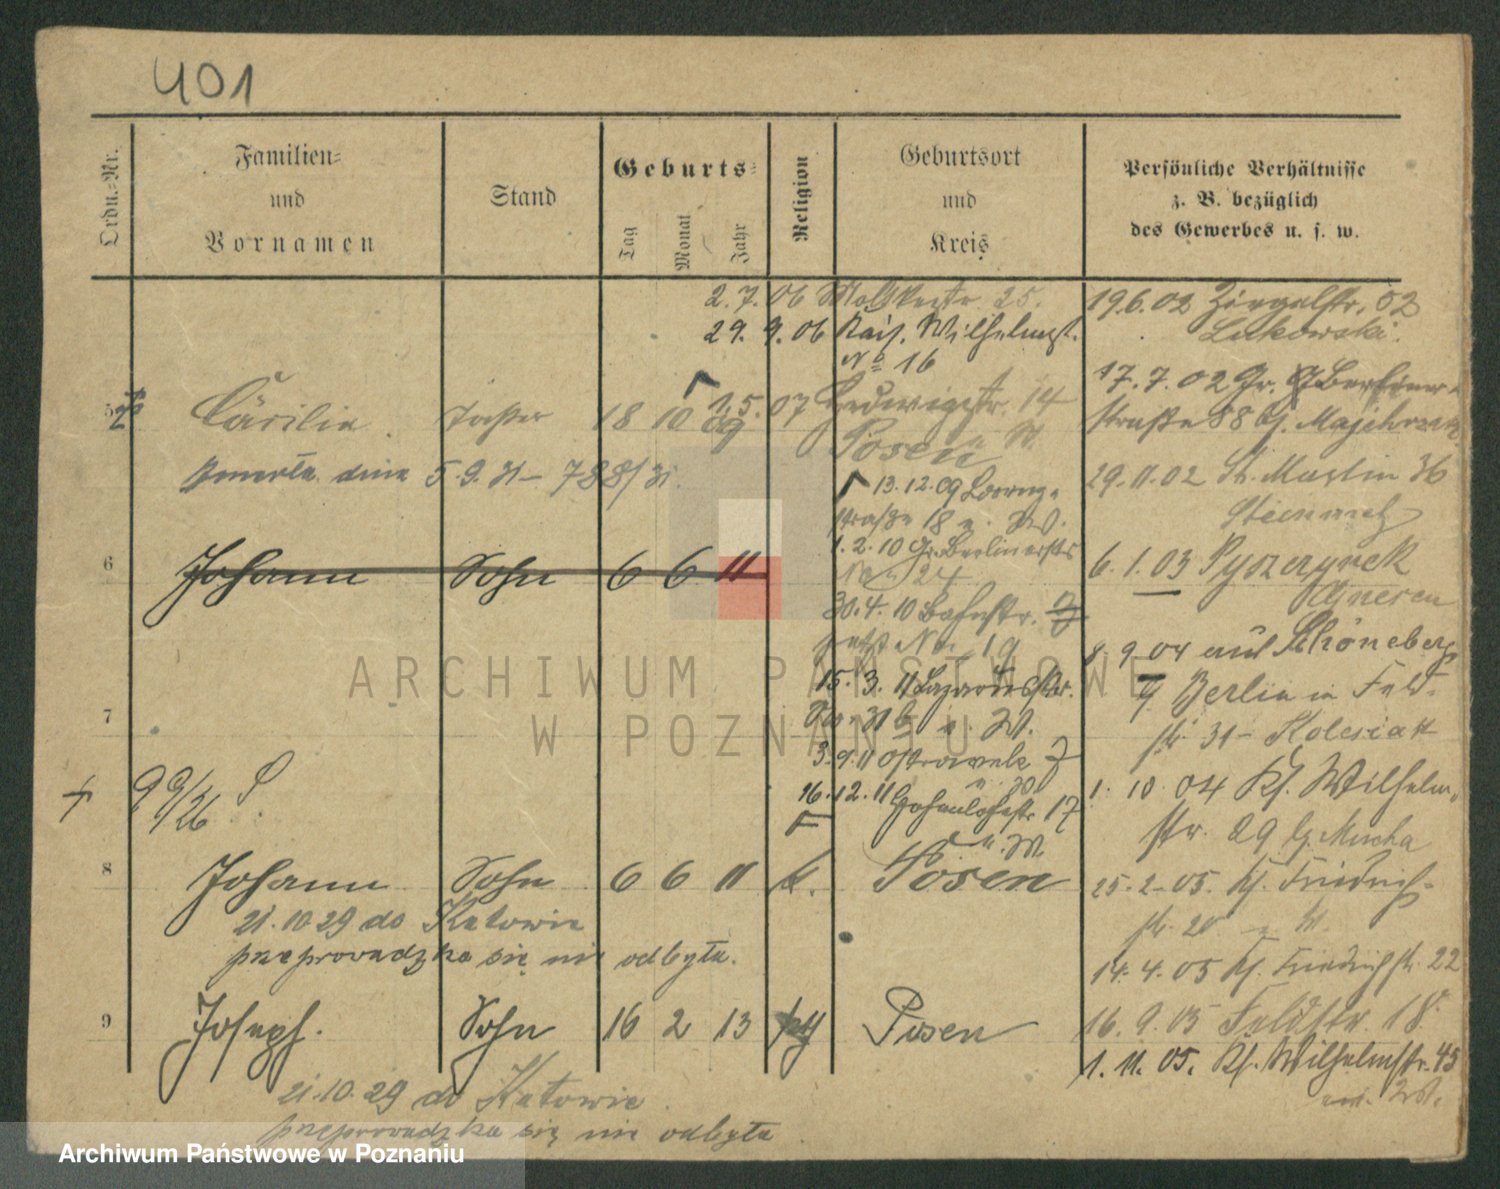 401
Ordn.-Nr.
Familien-
und
Vornamen
Stand
Geburts-
Tag
Monat
Jahr
Religion
Geburtsort
und
Kreis
Persönliche Verhältnisse
z. B. bezüglich
des Gewerbes u. s. w.
2.7.06 Moltkestr. 25.
29.9.06 Kais. Wilhelmst.
No 16
Cäcilia Tochter 18 10 09
1.5.07 Hedwigstr. 14
Posen
dnia 5.9.31 - 788/31.
13.12.09
straße 18 u. W.
1.2.10 Gr. Berlinerstr
No 24
6 Johann Sohn 6 6 11
30.4.10 Bahnstr.
jetzt No. 19
15.3.11 Lazarusstr.
7
3.9.11 Ostrowek
16.12.11 Hohenlohestr 17
u. W.
9/26
8 Johann Sohn 6 6 11 k. Posen
21.10.29 do Katowic
przeprowadzka się nie odbyła.
9 Joseph. Sohn 16 2 13 Posen
21.10.29 do Katowic
przeprowadzka się nie odbyła
19.6.02 Ziegelstr. 02
Lukowski.
17.7.02 Gr. Berliner-
straße 88
29.11.02 St. Martin 36
Steinmetz
6.1.03 Pyszczynek
Gnesen
8.9.04 auf Schöneberg
Berlin in Feld-
str 31 - Kolesiak
1.10.04 Kl. Wilhelm-
str. 29 b. Mucha
25.2.05. Kl. Friedrich-
str. 20
14.4.05 Kl. Friedrichstr. 22
16.9.05 Feldstr 18
1.11.05. Kl. Wilhelmstr. 45
ARCHIWUM PAŃSTWOWE
W POZNANIU
Archiwum Państwowe w Poznaniu